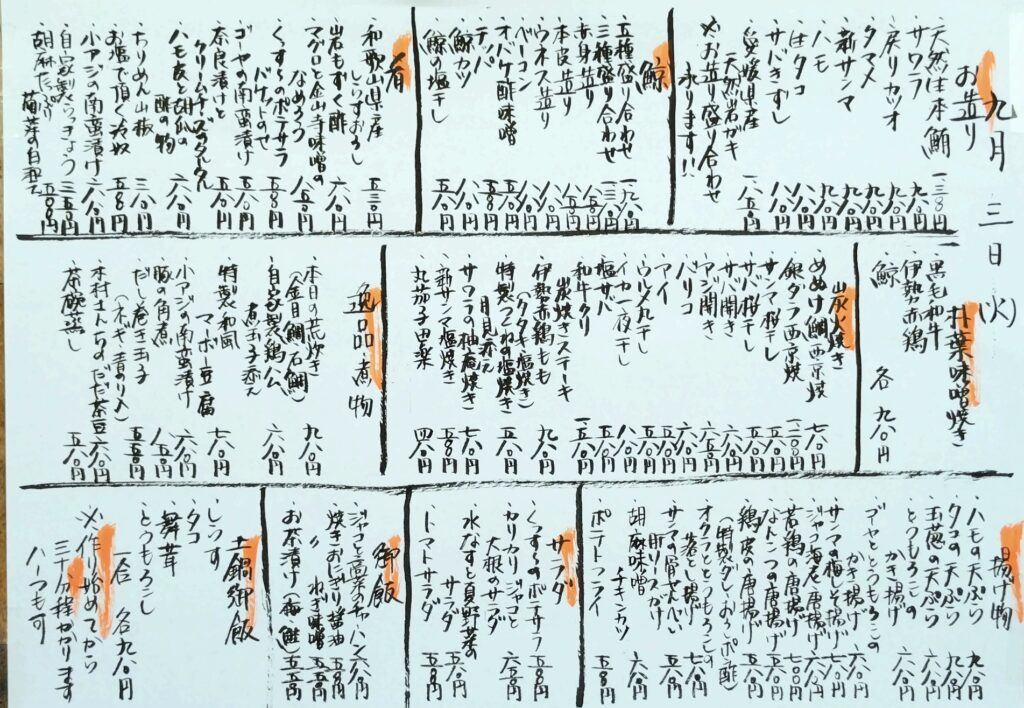 九月三日(火)
お造り
・天然生本鮪 一三八〇円
・サワラ 九八〇円
・戻りカツオ 九八〇円
・タマメ 九八〇円
・新サンマ 九八〇円
・ハモ 九八〇円
・生タコ 八八〇円
・サバきずし 八八〇円
・愛媛県産
天然岩ガキ 一八五〇円
※お造り盛り合わせ
承ります!!
鯨
・五種盛り合わせ 一九八〇円
・三種盛り合わせ 一三八〇円
・赤身造り
・本皮造り
・ウネス造り
・ベーコン
・オバケ酢味噌
・テッパ
・鯨カツ
・鯨の塩干し
肴
・和歌山県産
しらすおろし 五三〇円
・岩もずく酢 六八〇円
・マグロと金山寺味噌の
なめろう 八五〇円
・くずしのポテサラ
バゲットのせ 五五〇円
・ゴーヤの南蛮漬け 五八〇円
・奈良漬けと
クリームチーズのタルタル 五八〇円
・ハモ皮と胡瓜の
酢の物 六八〇円
・ちりめん山椒 三八〇円
・お塩で頂く冷奴 五五〇円
・小アジの南蛮漬け 六八〇円
・自家製らっきょう 三五〇円
・胡麻たっぷり
菊菜の白和え 五五〇円
朴葉味噌焼き
・黒毛和牛
・伊勢赤鶏
・鯨
各 九八〇円
炭火焼き
・めぬけ鯛西京焼 七八〇円
・銀ダラ西京焼
・サンマ桜干し
・サバ桜干し
・サバ開き
・アジ開き
・バリコ
・エイ
・ウルメ丸干し
・イカ一夜干し
・塩サバ
・和牛クリ
炭焼きステーキ
・伊勢赤鶏もも
(タタキ・塩焼き) 九八〇円
・特製つくねの塩焼き
月見添え 五八〇円
・サワラの柚庵焼き 七八〇円
・新サンマ塩焼き
・丸茄子田楽 四八〇円
逸品煮物
・本日の荒炊き
(金目鯛・石鯛) 九八〇円
・自家製鶏ハム
煮玉子添え 六八〇円
・特製和風
マーボ豆腐 七八〇円
・小アジの南蛮漬け 六八〇円
・豚の角煮 八五〇円
・だし巻き玉子
(ネギ・青のり入)
・木村さんちのだだ茶豆 六八〇円
・茶碗蒸し 五八〇円
揚げ物
・ハモの天ぷら 九八〇円
・タコの天ぷら 九八〇円
・玉葱の天ぷら 六八〇円
・とうもろこしの
かき揚げ 六八〇円
・ゴーヤととうもろこしの
かき揚げ 六八〇円
・サンマの梅しそ揚げ
・ジャコ海老唐揚げ
・若鶏の唐揚げ
・なんこつの唐揚げ
・鶏皮の唐揚げ
(特製ダレ・おろしポン酢)
・オクラととうもろこしの
落とし揚げ
・サンマの骨せんべい
肝ソースがけ
・胡麻味噌
チキンカツ 六八〇円
・ポテトフライ 五五〇円
サラダ
・くずしのポテサラ 五五〇円
・カリカリジャコと
大根のサラダ 六五〇円
・水なすと夏野菜の
サラダ
・トマトサラダ 五五〇円
御飯
・ジャコと高菜のチャハン 六八〇円
・焼きおにぎり醤油 五五〇円
・〃 ねぎ味噌 五五〇円
・お茶漬け(梅・鮭) 五五〇円
土鍋御飯
・しらす
・タコ
・舞茸
・とうもろこし
一合 各九八〇円
※作り始めてから
三十分程かかります
ハーフも可